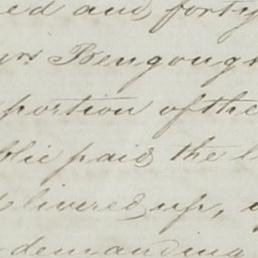 ed and forty
urs Bengough
portion of the
blic paid the l
livered up,
demanding